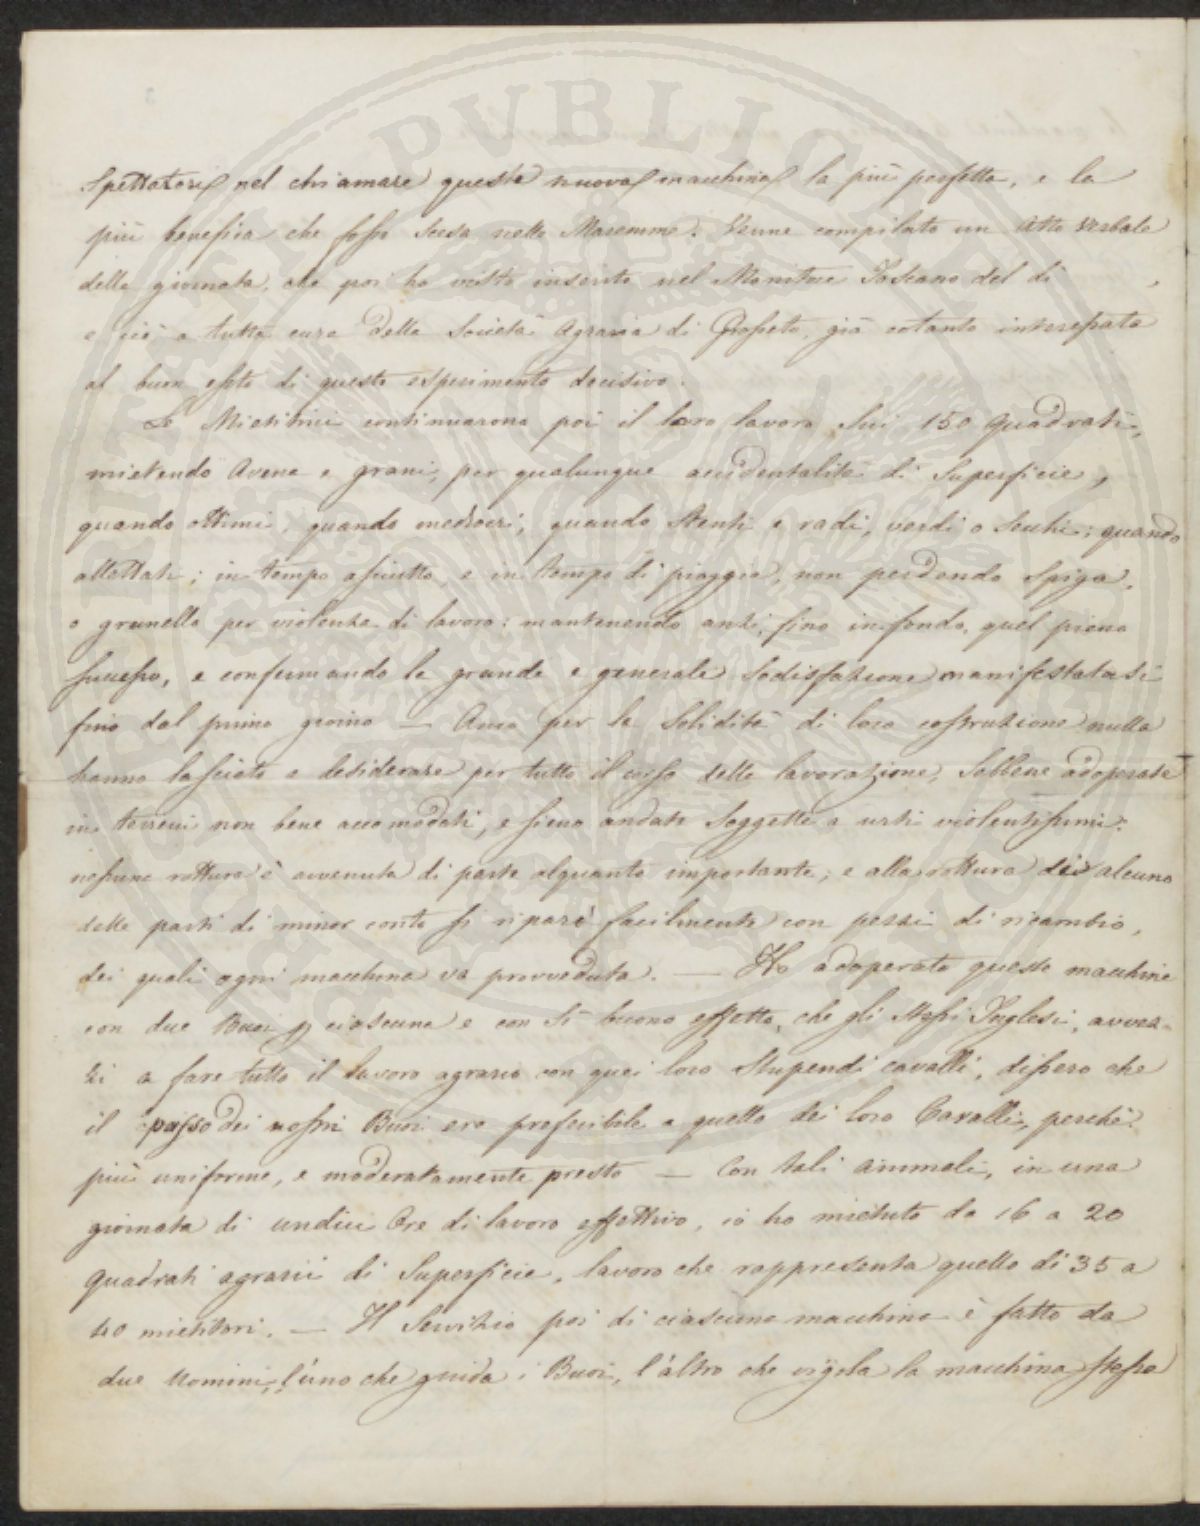 Spettatori nel chiamare queste nuove macchine la più perfetta, e la
più benefica che fosse scesa nelle Maremme. Venne compilato un Atto verbale
della giornata, che poi ho visto inserito nel Monitore Toscano del dì
e ciò a tutta cura della Società Agraria di Grosseto, già cotanto interessata
al buon esito di questo esperimento decisivo.
Le Mietitrici continuarono poi il loro lavoro sui 150 quadrati,
mietendo Avene e grani, per qualunque accidentalità di Superficie,
quando ottimi, quando mediocri, quando stenti e radi, verdi o secchi; quando
allettati; in tempo asciutto, e in tempo di pioggia, non perdendo spiga,
o granello per violenza di lavoro: mantenendo anzi, fino in fondo, quel pieno
successo, e confermando la grande e generale sodisfazione manifestatasi
fino dal primo giorno — Anco per la solidità di loro costruzione nulla
hanno lasciato a desiderare per tutto il corso della lavorazione, sebbene adoperate
in terreni non bene accomodati, e sieno andate soggette a urti violentissimi:
nessuna rottura è avvenuta di parte alquanto importante; e alla rottura di alcuna
delle parti di minor conto si riparò facilmente con pezzi di ricambio,
dei quali ogni macchina va provveduta. — Ho adoperato queste macchine
con due Buoi p ciascuna e con sì buono effetto, che gli stessi Inglesi, avvez-
zi a fare tutto il lavoro agrario con quei loro stupendi cavalli, dissero che
il passo dei nostri Buoi era preferibile a quello dei loro Cavalli, perchè
più uniforme, e moderatamente presto — Con tali animali, in una
giornata di undici Ore di lavoro effettivo, io ho mietuto da 16 a 20
quadrati agrarii di Superficie, lavoro che rappresenta quello di 35 a
40 mietitori. — Il Servizio poi di ciascuna macchina è fatto da
due uomini, l'uno che guida i Buoi, l'altro che vigila la macchina stessa
PUBLIC